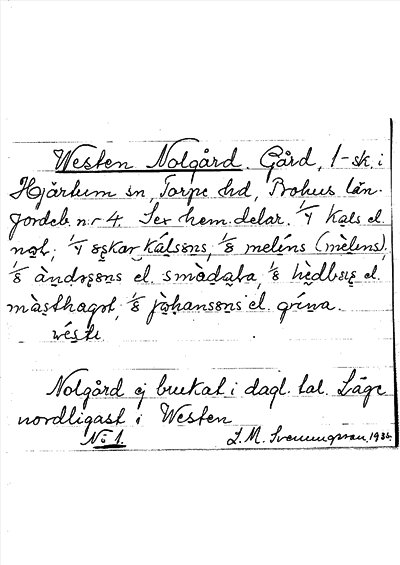 Westen Nolgård. Gård, 1-sk. i
Hjärtum sn, Torpe hd, Bohus län.
Jordeb. n:r 4. Sex hem.delar. 1/4 kals el.
nọt, 1/4 ọskar kálsọns, 1/8 melíns (mèlịns),
1/8 àndṛsọns el. smàdạba, 1/8 hèdbẹrg el.
màsthagọt, 1/8 jọ̀hansọns el. grína.
vẹ́stẹ
Nolgård ej brukat i dagl. tal. Läge
nordligast i Westen
No 1.
L. M. Svenungsson. 1936.